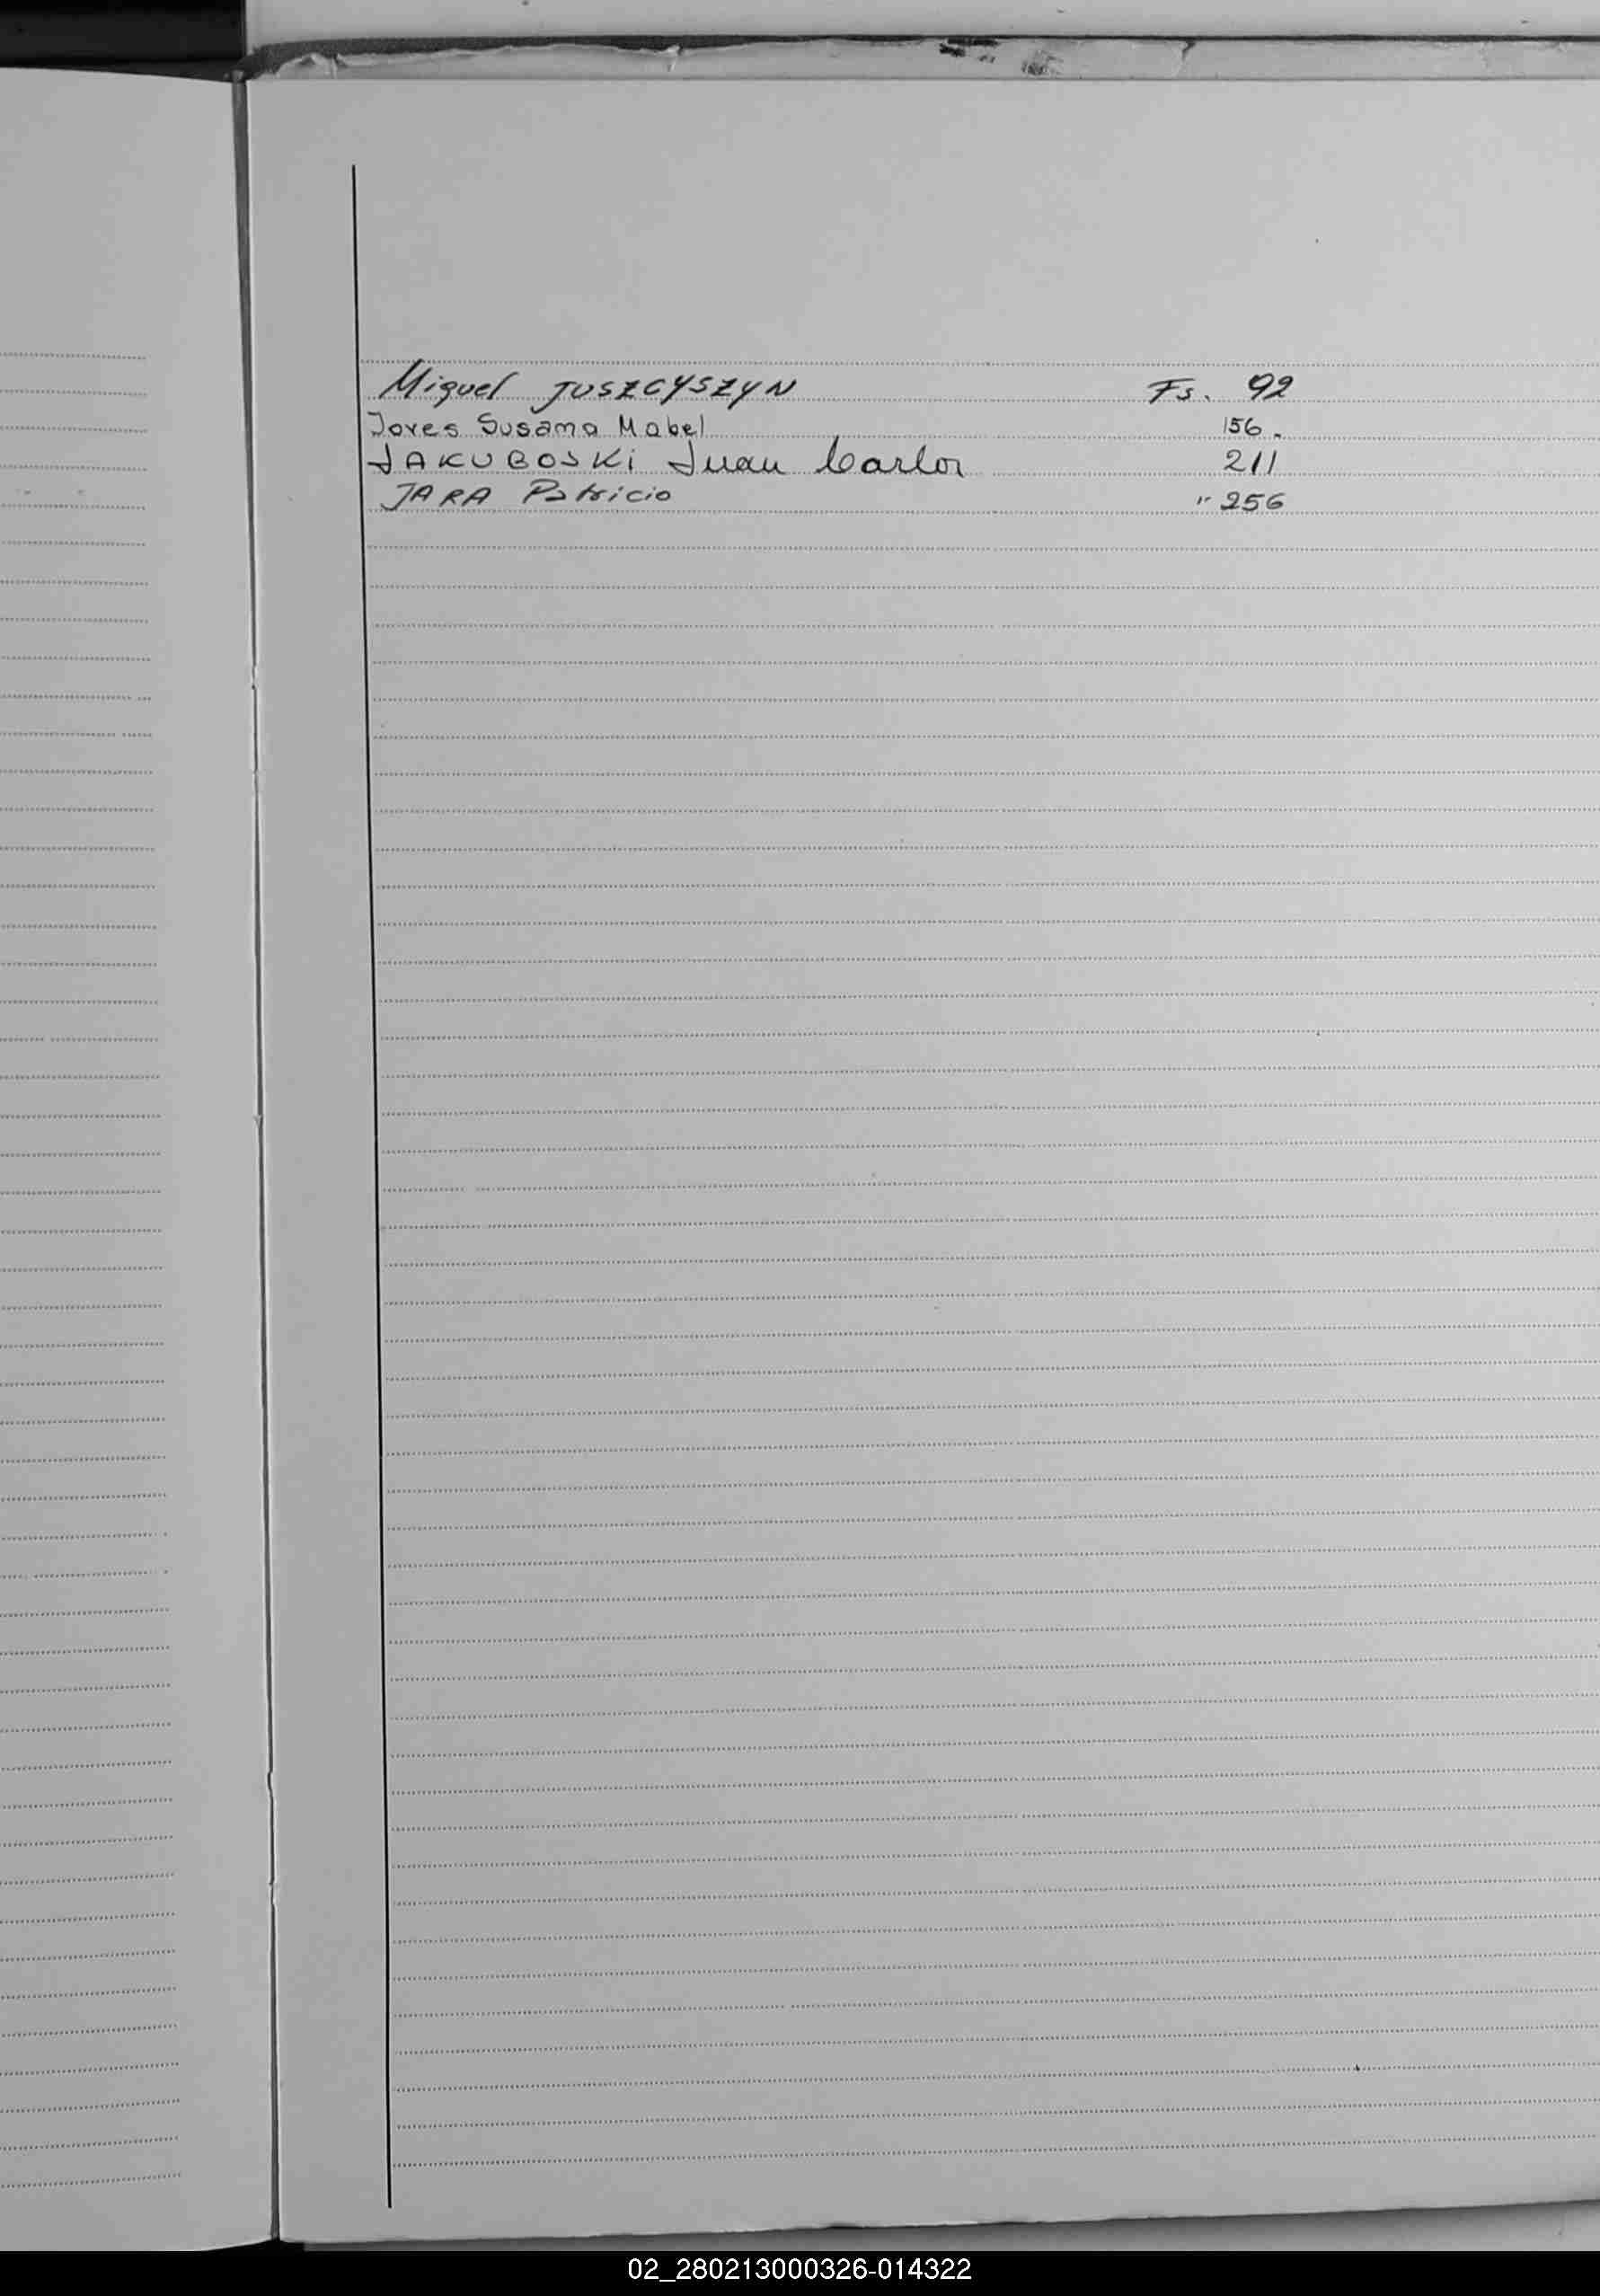 Miguel JUSZCYSZYN Fs. 92
Jores Susana Mabel 156.
JAKUBOSKi Juan Carlos 211
JARA Patricio " 256
02_280213000326-014322